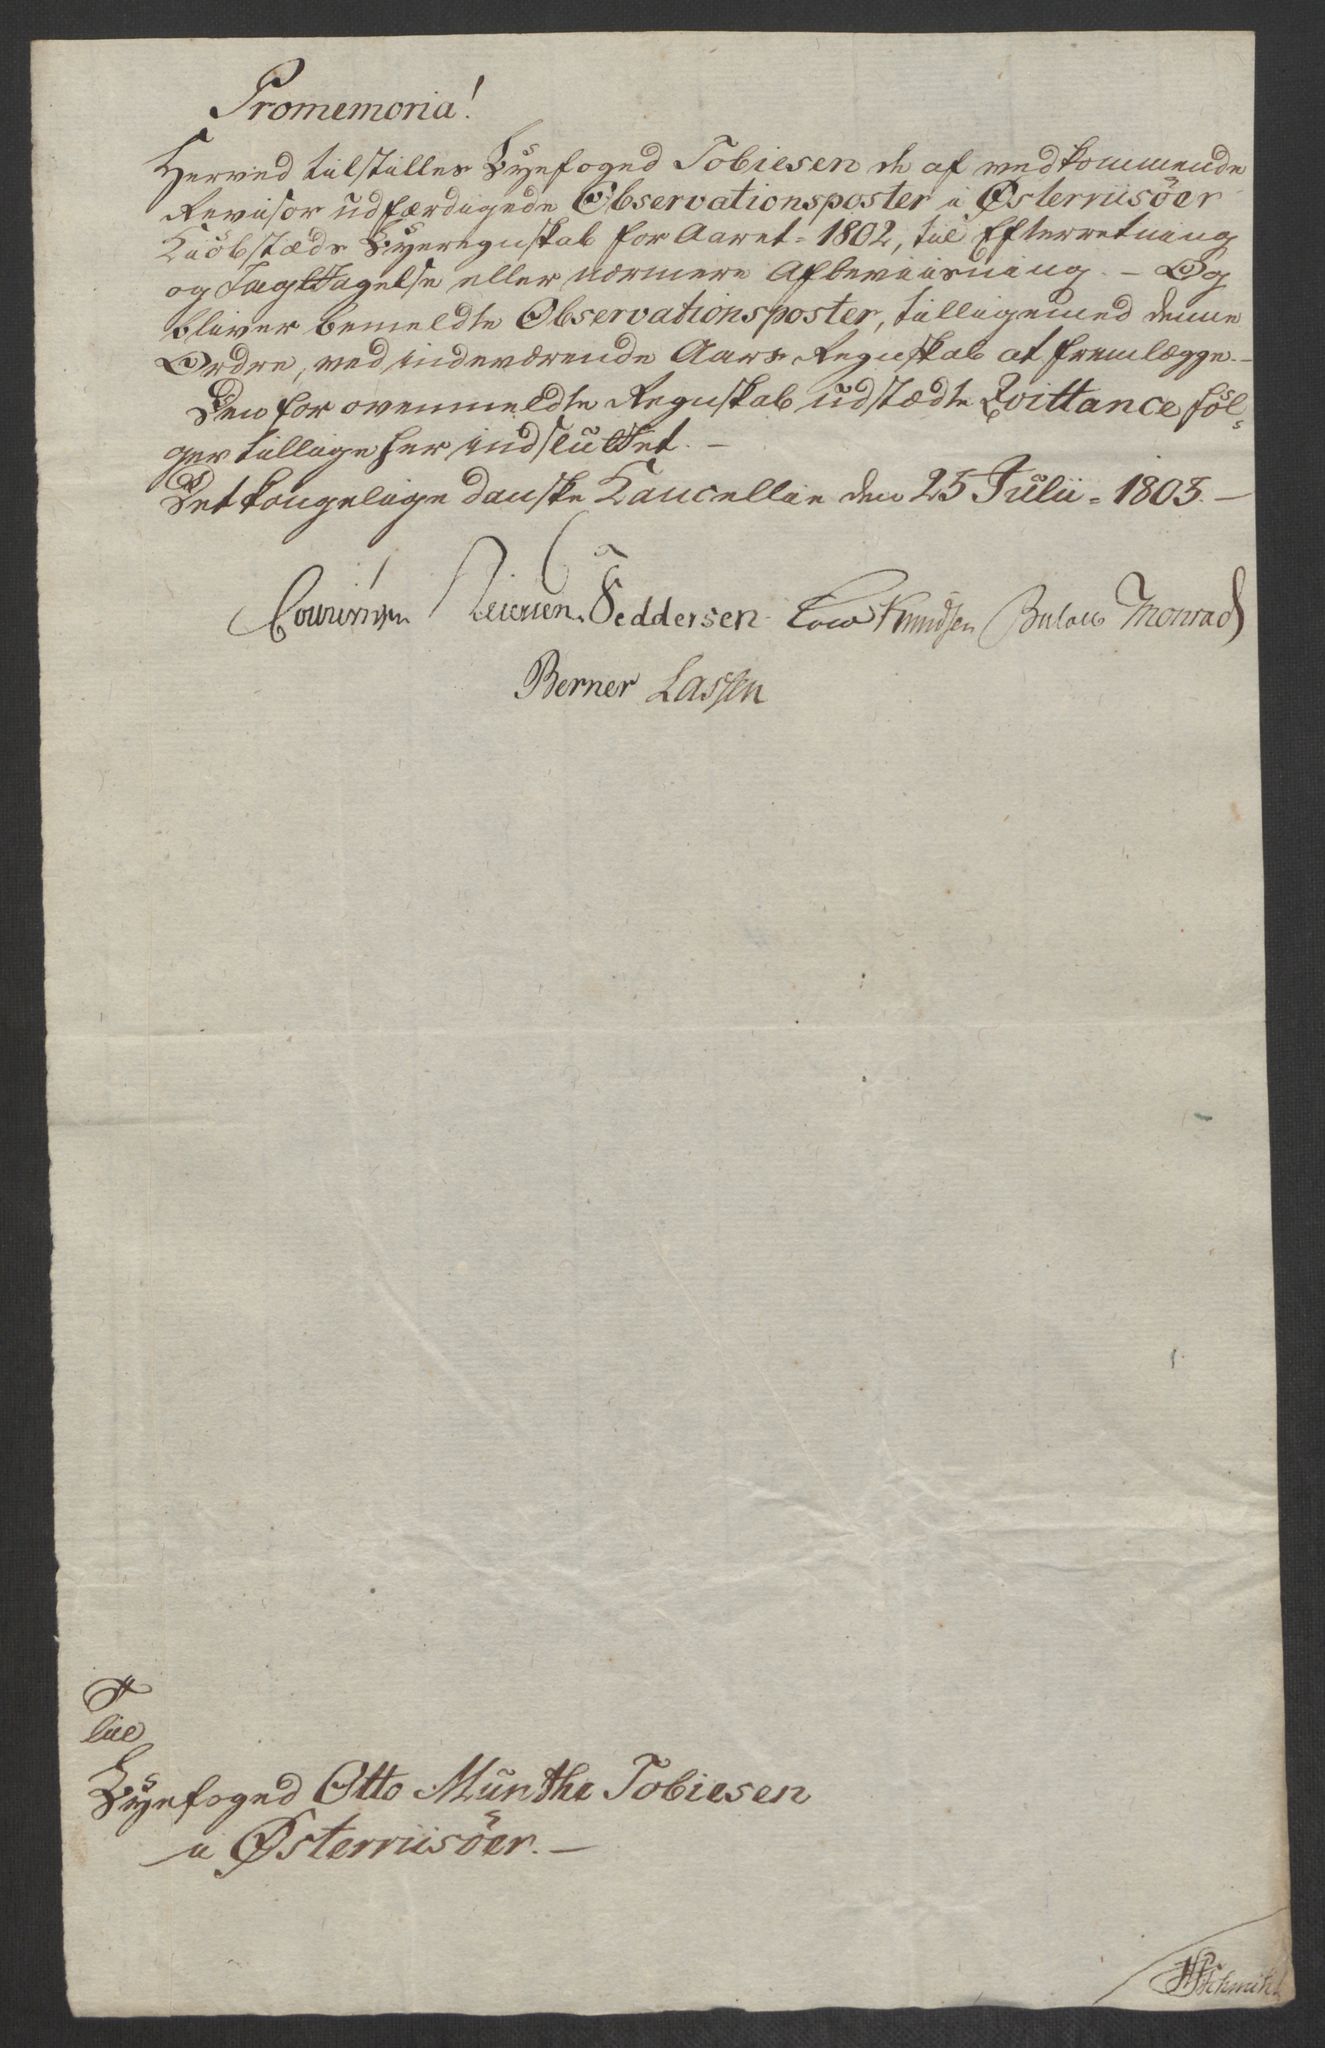 Promemoria!
Herved tilstilles Byefoged Tobiesen de af vedkommende
Revisor udfærdigede Observationsposter i Østerriisöer
Kiöbstæds Byeregnskab for Aaret 1802, til Efterretning
og Iagttagelse eller nærmere Afbeviisning. – Og
bliver bemeldte Observationsposter, tilligemed denne
Ordre, ved indeværende Aars Regnskab at fremlægge. –
Den for ovenmeldte Regnskab udstædte Qvittance föl-
ger tillige her indsluttet. –
Det kongelige danske Cancellie den 25 Julii 1803. –
Feddersen Knudsen Bülow Monrad
Berner Lassen
Til
Byefoged Otto Munthe Tobiesen
i Østerriisöer. –
Schmidt